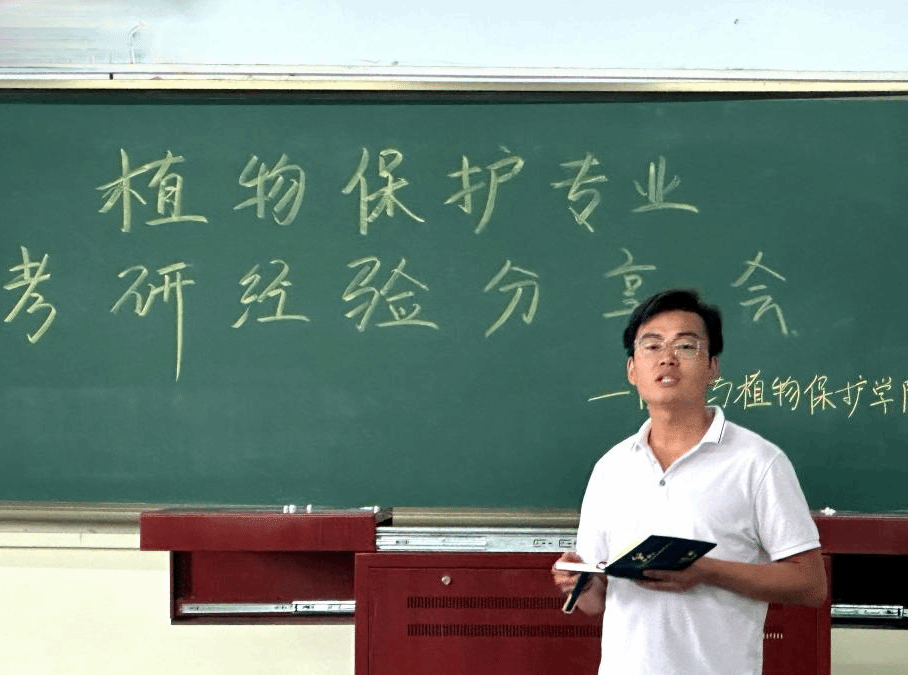 植物保护专业
考研经验分享会
一 与植物保护学院